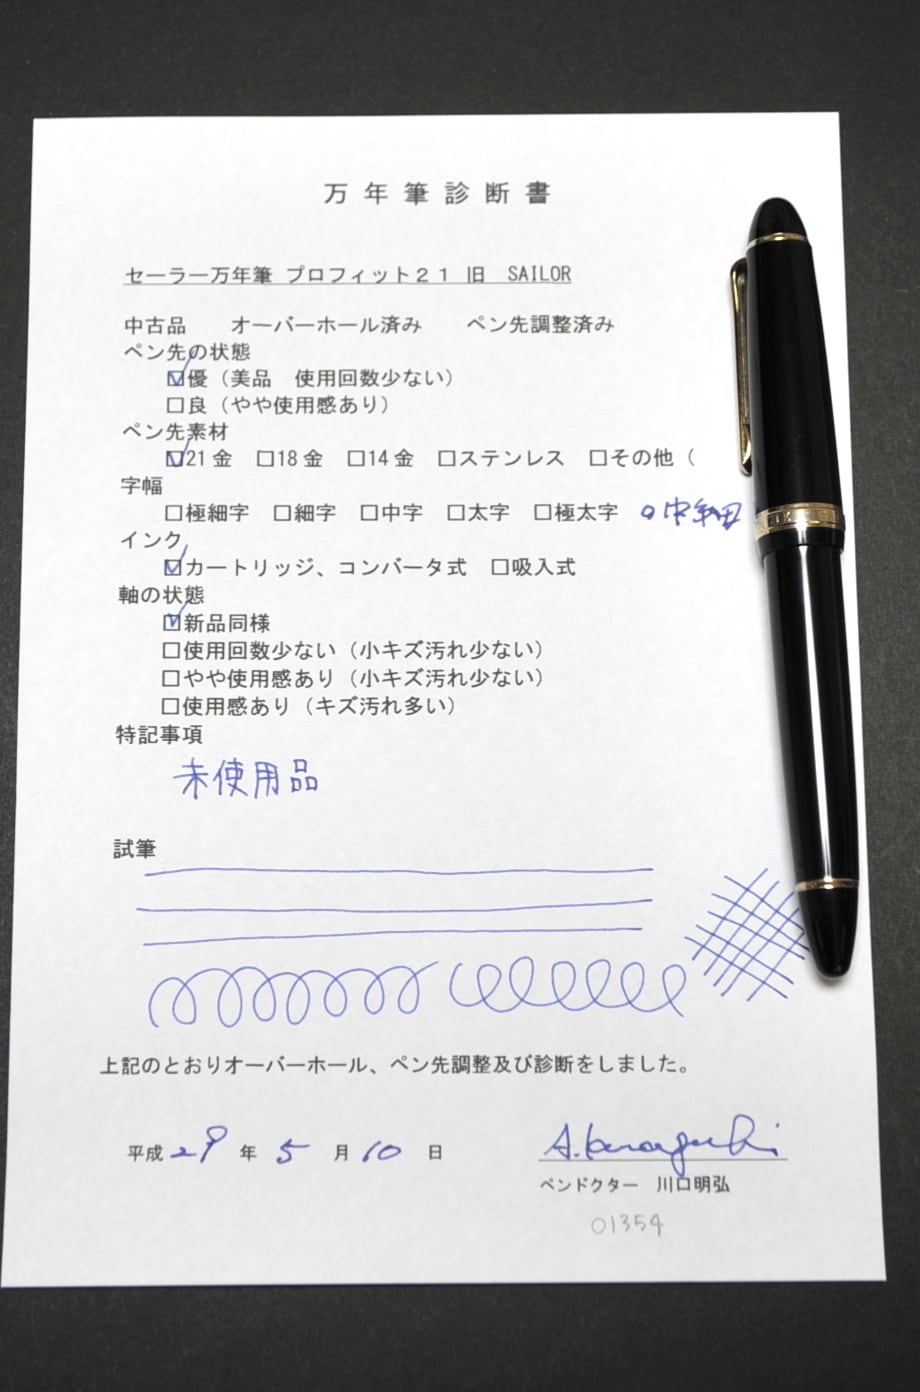 万年筆診断書
セーラー万年筆 プロフィット21 旧 SAILOR
中古品 オーバーホール済み ペン先調整済み
ペン先の状態
☑優(美品 使用回数少ない)
□良(やや使用感あり)
ペン先素材
☑21金 □18金 □14金 □ステンレス □その他(
字幅
□極細字 □細字 □中字 □太字 □極太字 o中細
インク
☑カートリッジ、コンバータ式 □吸入式
軸の状態
☑新品同様
□使用回数少ない(小キズ汚れ少ない)
□やや使用感あり(小キズ汚れ少ない)
□使用感あり(キズ汚れ多い)
特記事項
未使用品
試筆
上記のとおりオーバーホール、ペン先調整及び診断をしました。
平成29年5月10日
A. Kawaguchi
ペンドクター 川口明弘
01354